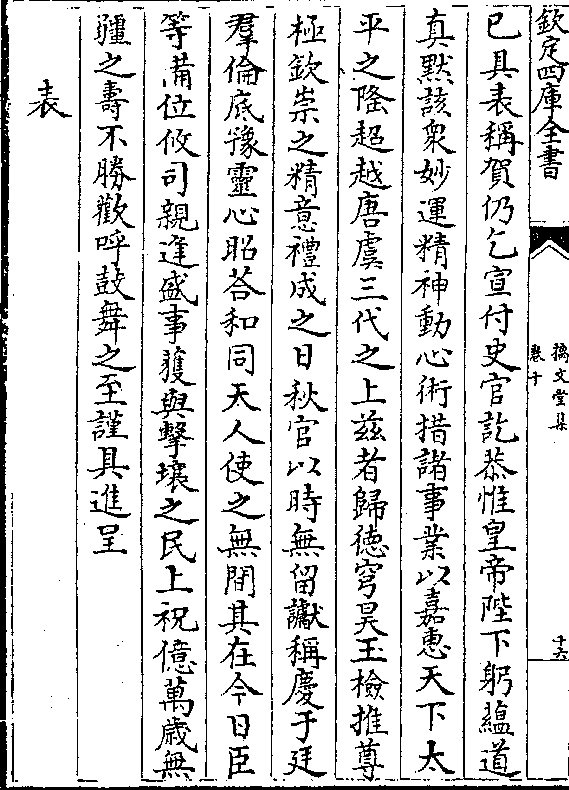 欽定四庫全書
摛文堂集
卷十
十六
已具表稱賀仍乞宣付史官訖恭惟皇帝陛下躬蘊道
真默該衆妙運精神動心術措諸事業以嘉惠天下太
平之隆超越唐虞三代之上兹者歸德穹昊玉檢推尊
極欽崇之精意禮成之日秋官以時無留讞稱慶于廷
羣倫底豫靈心昭荅和同天人使之無間其在今日臣
等備位攸司親逢盛事獲與擊壤之民上祝億萬歲無
疆之壽不勝歡呼鼓舞之至謹具進呈
表